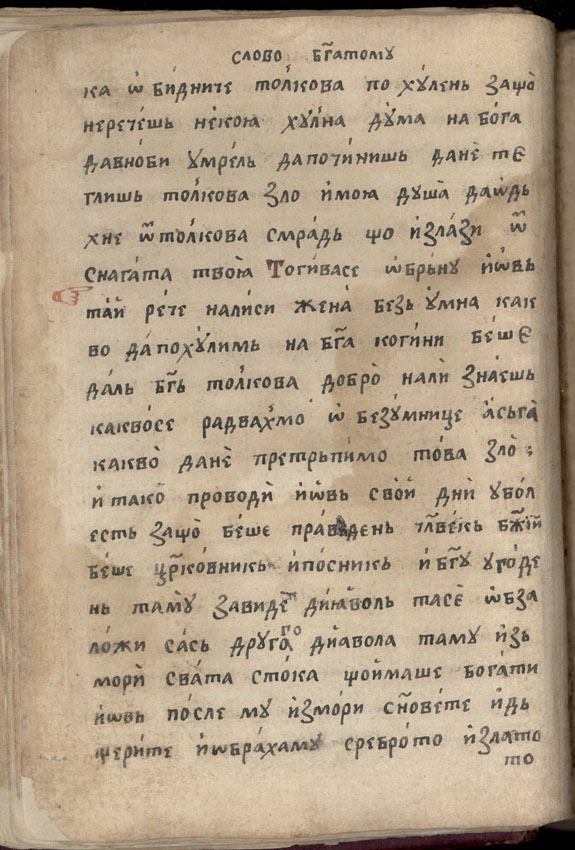 слово бг҃атому
ка ѿ бѝдниче толкова по хꙋлень защо̀
неречешь некою хꙋлна дꙋма на бо́га
давноби умрѣль да почи́нишь дане тѐ
глишь толкова зло и́мою душа̀ даѡдь
хне ѿ толкова смра́дь що и́злази ѿ
снага́та твою̀ Тоги́васе ѡбрьну и҆ѡвь
та́й ре́че налиси жена̀ безь у́мна как
во да похꙋ́лимь на бг҃а коги́ни беше
да́ль бг҃ь толкова добро̀ нали̇̀ зна́ешь
какво́се радвахмо ѿ безꙋ́мнице а́сьга
какво̀ дане̇̀ претрьпи́мо то́ва зло ;
и҆ тако̀ проводѝ и҆ѡвь сво́й днѝ убол
есть защо̀ беше пра́веднь чл҃векь бж҃їй
беше цр҃ко́вникь и҆по́сникь и҆ бг҃у уго́де
нь та́мꙋ завиде дия́воль тасѐ ѡбза
ло́жи са́сь друга по дия́вола таму и҆зь
морѝ свата сто́ка щои́маше бога́ти
и҆ѡвь по́сле му и҆змо́ри сн҃ове́те и҆дь
щери́те и҆ѡбра́хаму сребро́то и҆злато
то